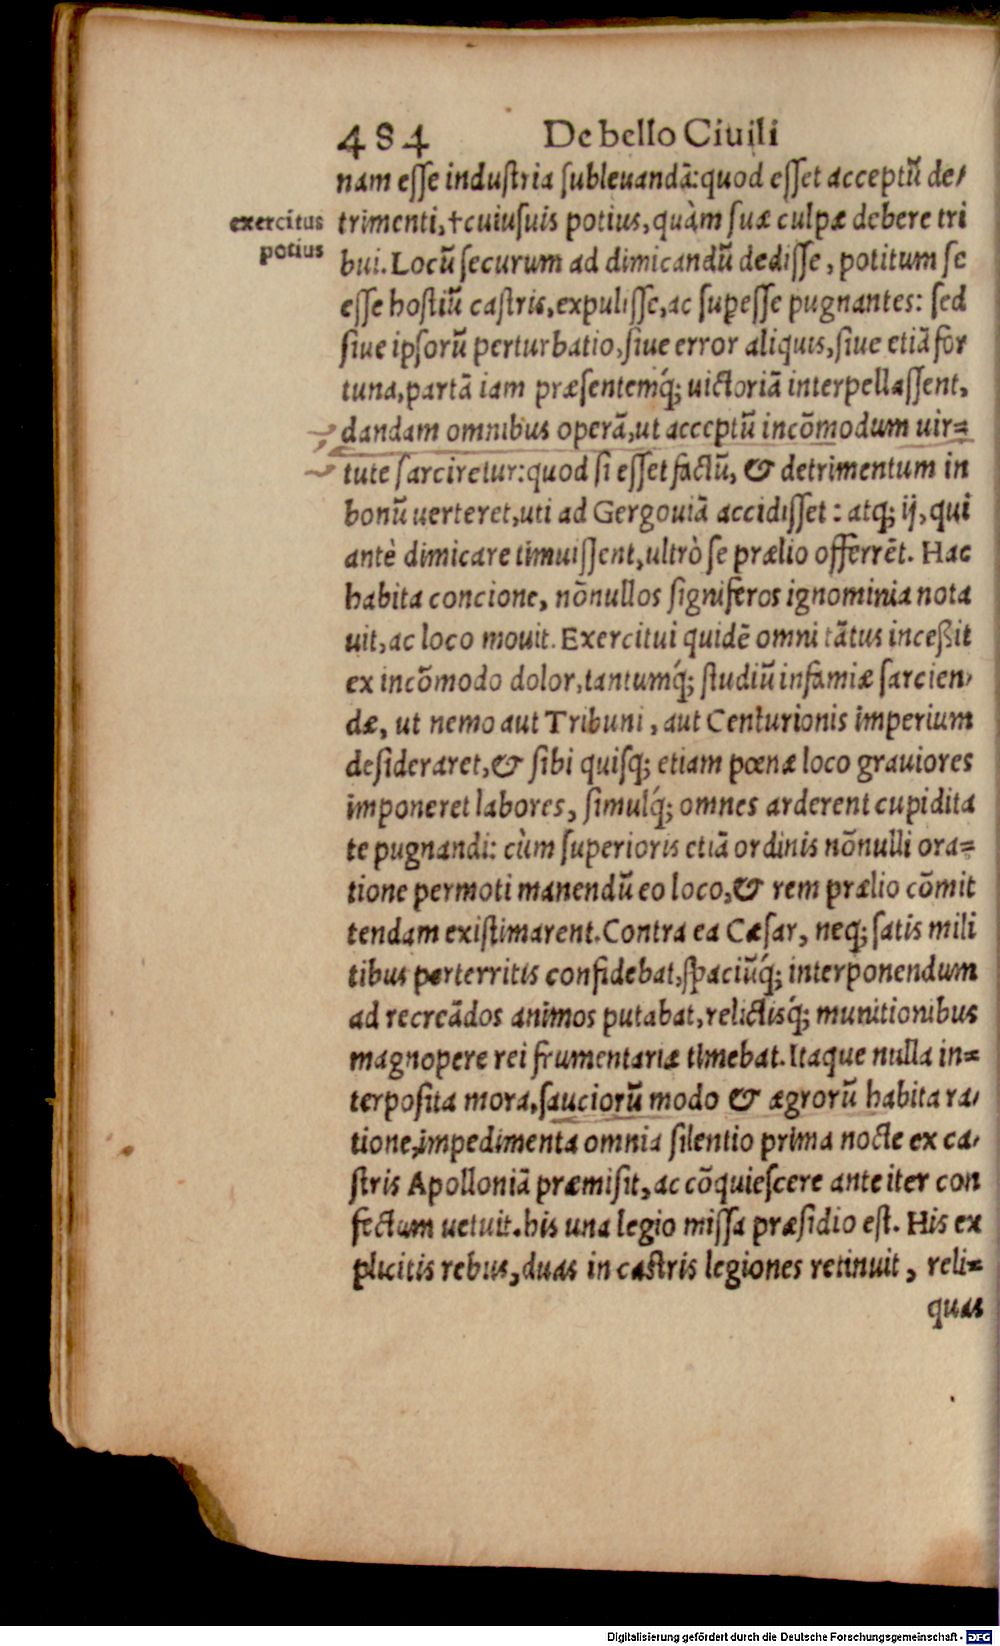 484 De bello Ciuili
nam eſſe induſtria ſubleuandā: quod eſſet acceptū de⸗
exercitus
trimenti, †cuiuſuis potius, quàm ſuæ culpæ debere tri
potius
bui. Locū ſecurum ad dimicandū dediſſe, potitum ſe
eſſe hoſtiū caſtris, expuliſſe, ac ſupeſſe pugnantes: ſed
ſiue ipſorū perturbatio, ſiue error aliquis, ſiue etiā for
tuna, partā iam præſentemq́; uictoriā interpellaſſent,
dandam omnibus operā, ut acceptū incōmodum uir⸗
tute ſarciretur: quod ſi eſſet factū, & detrimentum in
bonū uerteret, uti ad Gergouiā accidiſſet: atq; ij, qui
antè dimicare timuiſſent, ultrò ſe prælio offerrēt. Hac
habita concione, nōnullos ſigniferos ignominia nota
uit, ac loco mouit. Exercitui quidē omni tātus inceßit
ex incōmodo dolor, tantumq́; ſtudiū infamiæ ſarcien⸗
dæ, ut nemo aut Tribuni, aut Centurionis imperium
deſideraret, & ſibi quiſq; etiam pœnæ loco grauiores
imponeret labores, ſimulq́; omnes arderent cupidita
te pugnandi: cùm ſuperioris etiā ordinis nōnulli ora⸗
tione permoti manendū eo loco, & rem prælio cōmit
tendam exiſtimarent. Contra ea Cæſar, neq; ſatis mili
tibus perterritis confidebat, ſpaciūq́; interponendum
ad recreādos animos putabat, relictisq́; munitionibus
magnopere rei frumentariæ timebat. Itaque nulla in⸗
terpoſita mora, ſauciorū modo & ægrorū habita ra⸗
tione, impedimenta omnia ſilentio prima nocte ex ca⸗
ſtris Apolloniā præmiſit, ac cōquieſcere ante iter con
fectum uetuit. his una legio miſſa præſidio eſt. His ex
plicitis rebus, duas in caſtris legiones retinuit, reli⸗
quas
Digitalisierung gefördert durch die Deutsche Forschungsgemeinschaft - DFG